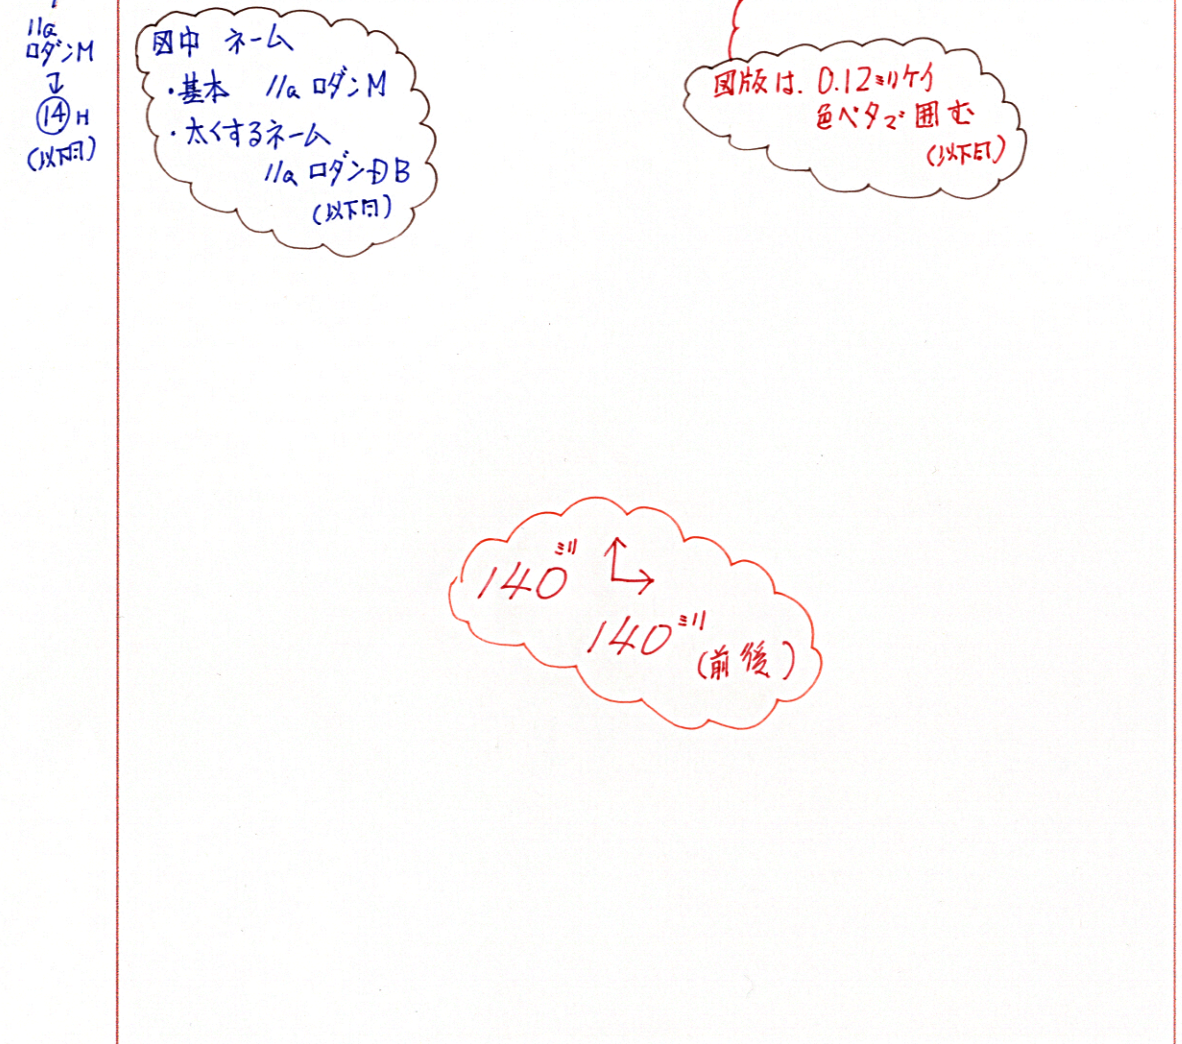 11Q
ロダンM
↓
⑭H
(以下同)
図中 ネーム
・基本 11Q ロダンM
・太くするネーム
11Q ロダンDB
(以下同)
図版は、0.12ミリケイ
色ベタで囲む
(以下同)
140ミリ
140ミリ
(前後)